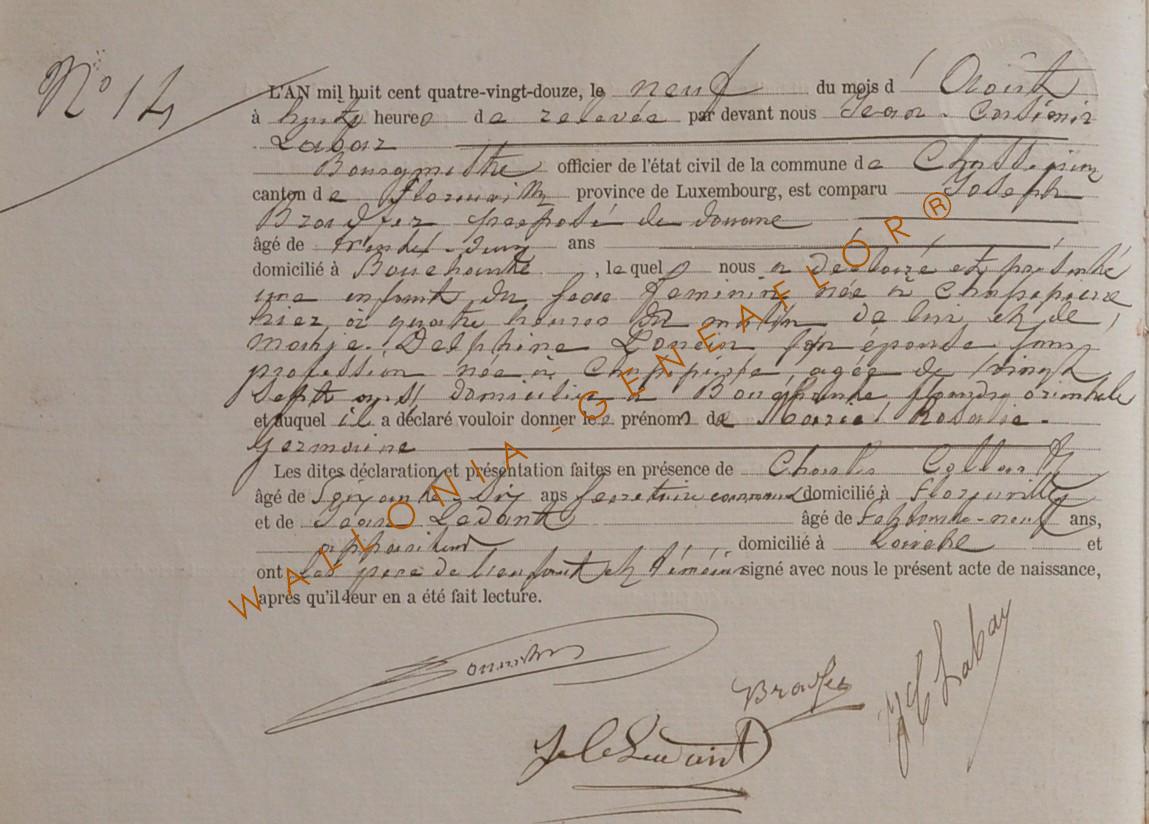 N° 14
L'AN mil huit cent quatre-vingt-douze, le neuf du mois d' Août
à huit heures de relevée par devant nous Jean-Casimir
Labaz
Bourgmestre officier de l'état civil de la commune de Chassepierre
canton de Florenville province de Luxembourg, est comparu Joseph
préposé de douane
âgé de ans
domicilié à Bouchaute, lequel nous a déclaré et présenté
une enfant du sexe féminin née à Chassepierre
hier, à quatre heures du matin de lui et de
Marie. Delphine son épouse sans
profession née à Chassepierre, agée de vingt
sept ans, domiciliée à Bouchaute flandre orientale
et auquel il a déclaré vouloir donner les prénoms de Marie Rosalie-
Germaine
Les dites déclaration et présentation faites en présence de Charles
âgé de soixante six ans secretaire communal domicilié à Florenville
et de Jean Ledant âgé de septante-neuf ans,
appariteur domicilié à Laiche et
ont les père de l'enfant et témoins signé avec nous le présent acte de naissance,
après qu'il leur en a été fait lecture.
J C Labaz
Ledant
WALLONIA - GENEAFLOR®